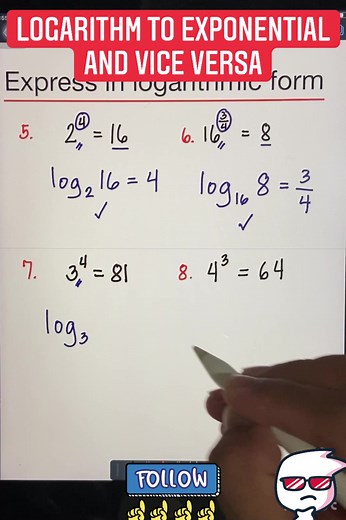 LOGARITHM TO EXPONENTIAL
AND VICE VERSA
Express in logarithmic form
5. 2⁴ = 16
log₂ 16 = 4 ✓
6. 16^(3/4) = 8
log₁₆ 8 = 3/4 ✓
7. 3⁴ = 81
log₃
8. 4³ = 64
FOLLOW